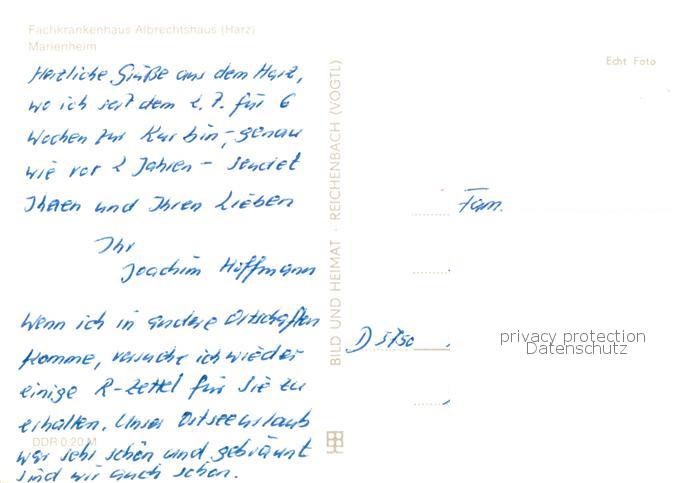 Fachkrankenhaus Albrechtshaus (Harz)
Marienheim
Echt Foto
Herzliche Grüße aus dem Harz,
wo ich seit dem 2.7. für 6
Wochen zur Kur bin, genau
wie vor 2 Jahren – sendet
Ihnen und Ihren Lieben
Ihr
Joachim Hoffmann
Wenn ich in andere Ortschaften
komme, versuche ich wieder
einige R-Zettel für Sie zu
erhalten. Unser Ostseeurlaub
war sehr schön und gebräunt
sind wir auch schon.
DDR 0,20 M
BILD UND HEIMAT · REICHENBACH (VOGTL)
Fam.
D 5750
privacy protection
Datenschutz